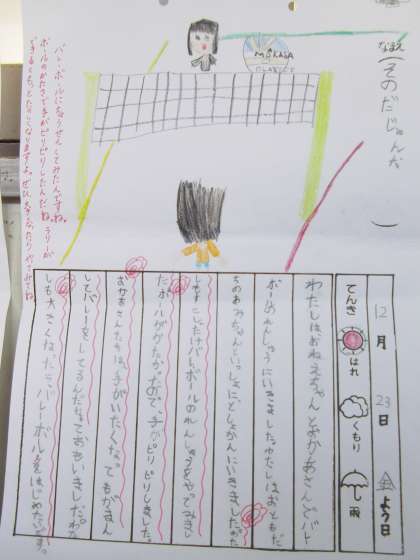 なまえ(そのだじゅんな)
MIKASA
12月23日金よう日
てんき はれ くもり 雨
わたしはおねえちゃんとおかあさんでバレ
ボーのれんしゅうにいきました。わたしはおともだ
ちのあみちゃんといっしょにとしょかんにいきました。
すこしだけバレーボールのれんしゅうをやってみまし
た。ボールがかたかたので、手がピリピリしました。
おかあさんたちは、手がいたくなってもがまん
してバレーをしてるんだなっておもいました。わた
しも大きくなったら、バレーボールをはじめたいです。
バレーボールにちょうせんしてみたんですね。
ボールのかたさで手がピリピリしたんだね。
できるともっとたのしくなりますよ。ぜひ、大きくなったらやってみてね